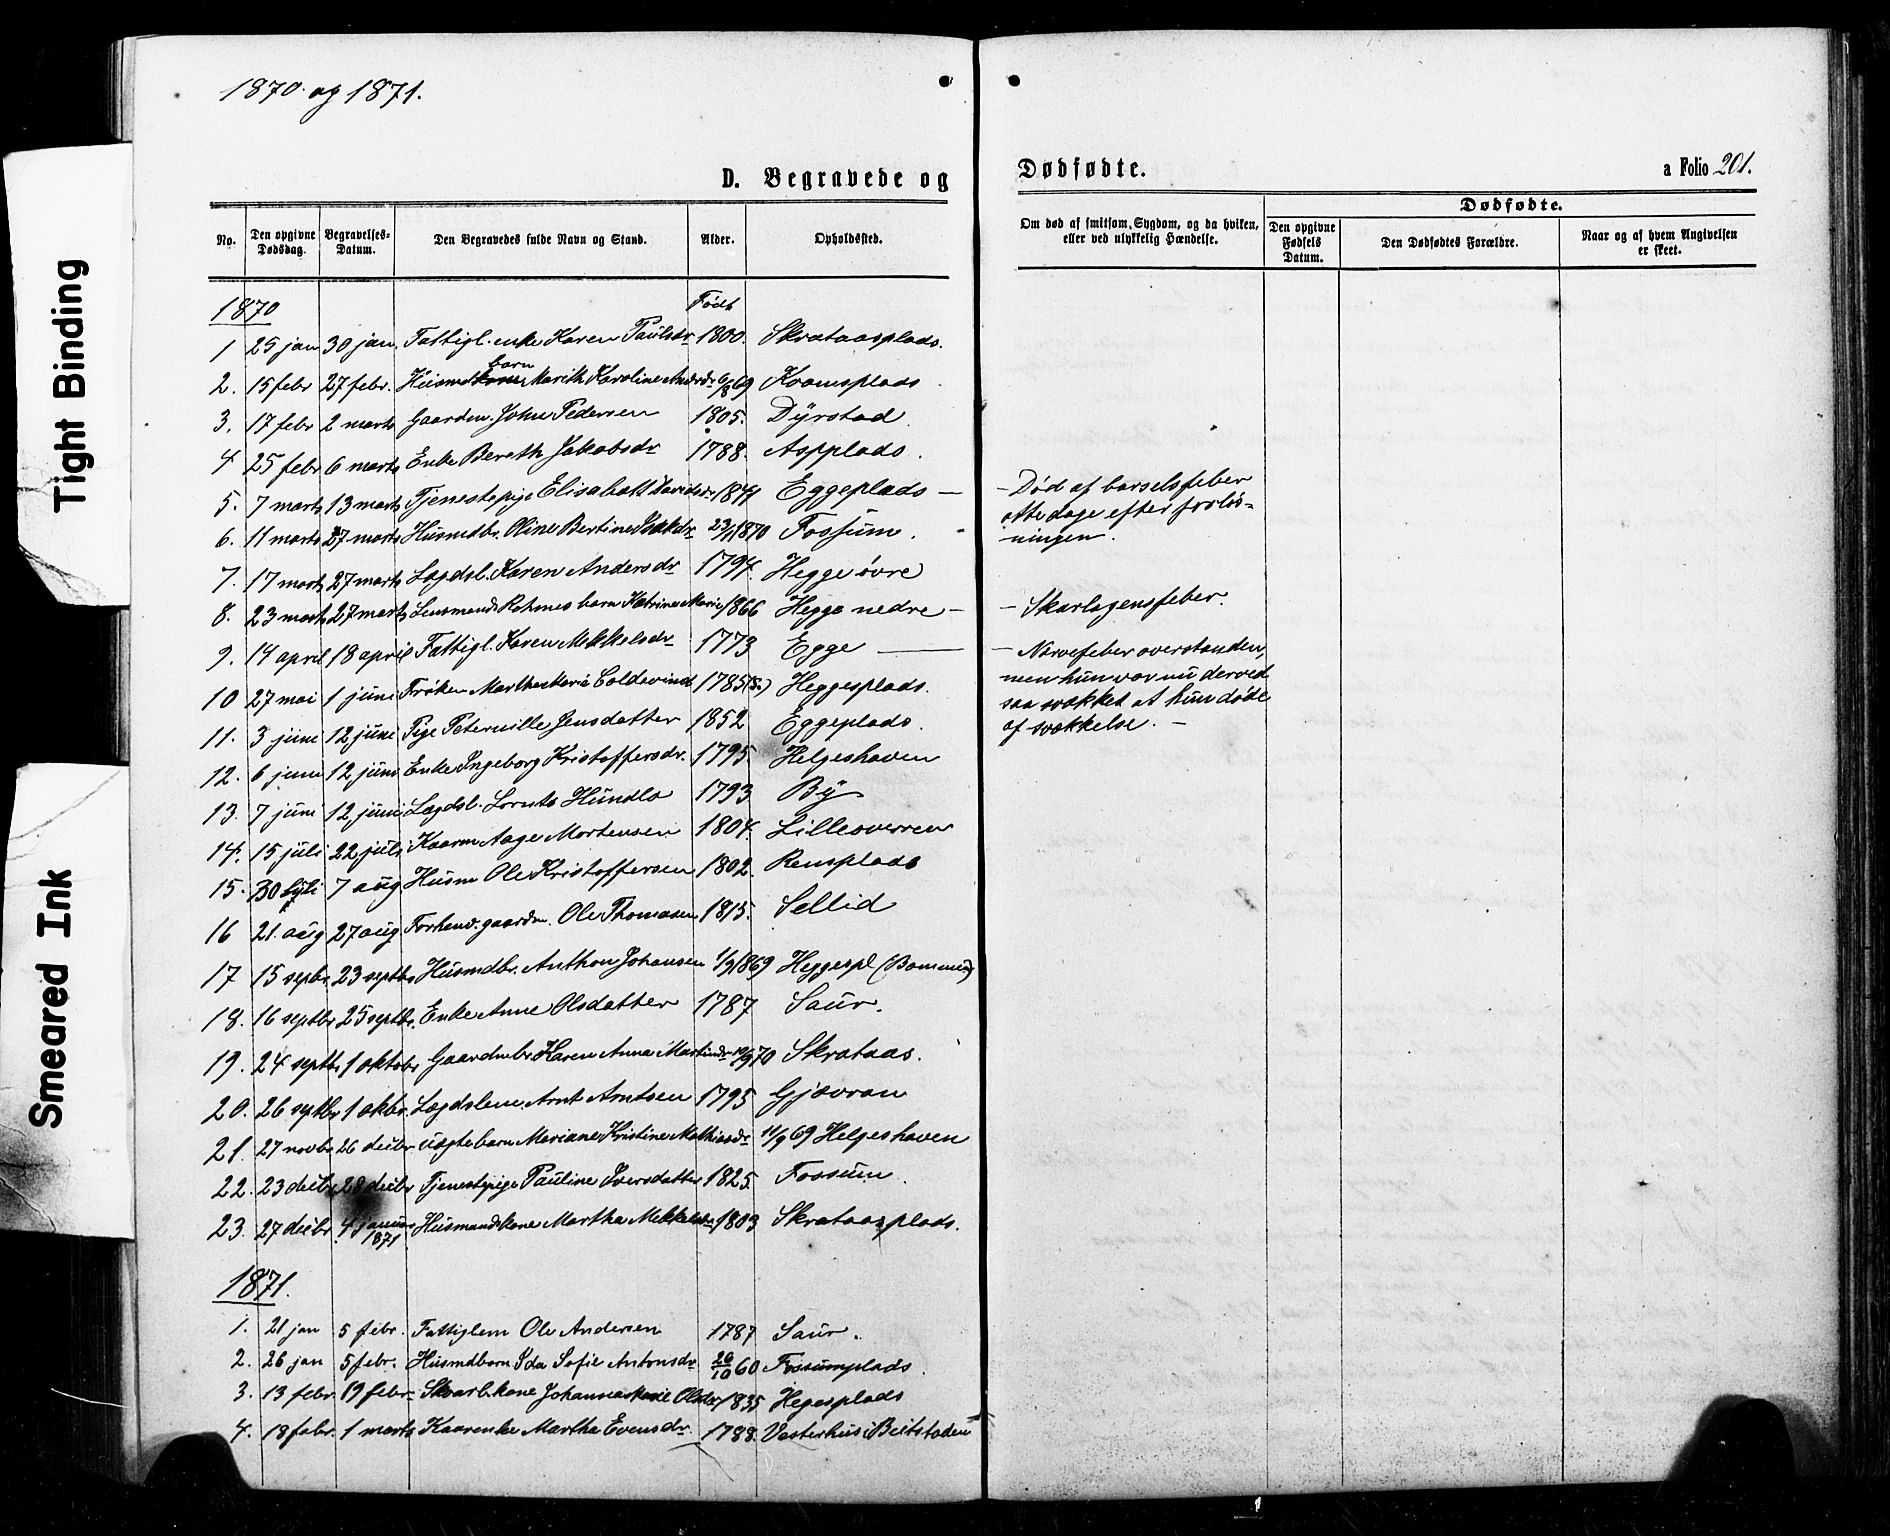 1870 og 1871.
D. Begravede og
No. Den opgivne Dødsdag. Begravelses-Datum. Den Begravedes fulde Navn og Stand. Alder. Opholdssted.
1870 Født
1 25 jan 30 jan. Fattigl. enke Karen Paulsdr 1800. Skrataasplads.
barn
2. 15 febr 27 febr. Husmd Marith Karoline Andrdr 6/8 69 Kvamsplads
3. 17 febr 2 marts Gaardm. John Pedersen 1805. Dyrstad
4 25 febr 6 marts Enke Bereth Jakobsdr 1788. Aspplads.
5. 7 marts 13 marts Tjenestepige Elisabett Davidsdr 1841 Eggeplads —
6. 11 marts 27 marts Husmdbr. Oline Bertine Isakdr 23/1 1870 Fossum.
7. 17 marts 27 marts Lægdsl. Karen Andersdr 1794. Hegge øvre
8. 23 marts 27 marts Lensmand Rohmes barn Katrine Marie 1866 Hegge nedre —
9. 14 april 18 april Fattigl. Karen Mekkelsdr 1773 Egge —
10 27 mai 1 juni Frøken Martha Maria Coldevind 1785 Heggesplads.
11. 3 juni 12 juni Pige Peternille Jensdatter 1852 Eggeplads.
12. 6 juni 12 juni Enke Ingeborg Kristoffersdr. 1795. Helgeshaven
13. 7 juni 12 juni Lægdsl. Lornts Hundlo 1793 By
14. 15 juli 22 juli Kaarm Aage Mortensen 1804. Lillesverren
15. 30 juli 7 aug Husm Ole Kristoffersen 1802. Rensplads
16 21. aug 27 aug Forhenv. gaardm. Ole Thomasen 1815. Sellid
17 15 septbr. 23 septbr Husmdbr. Anthon Johansen 1/9 1869 Heggespl
18. 16 septbr 25 septbr. Enke Anne Olsdatter 1787 Saur.
19. 24 septb 1 oktobr Gaardmbr. Karen Anna Martinsdr 10/9 70 Skrataas.
20. 26 septbr 1 okbr. Lægdslem. Arnt Arntsen 1795 Gjævran
21. 27 novbr 26 decbr uægtebarn Mariane Kristine Mathiasdr 11/9 69 Helgeshaven
22. 23 decbr 28 decbr Tjenestpige Pauline Iversdatter 1825. Fossum.
23. 27 decbr 4 januar 1871. Husmandskone Martha Mekkelsdr 1803 Skrataasplads.
1871.
1. 21 jan 5 febr. Fattiglem Ole Andersen 1787 Saur.
2. 26 jan 5 febr. Husmdbarn Ida Sofie Antonsdr 26/10 60 Fossumplads.
3. 13 febr 19 febr Skoarb. kone Johanna Olsdr 1835 Hegesplads
4. 18 febr. 1 marts Kaarenke Martha Evensdr. 1788. Vesterhus i Beitstaden
Dødfødte.
a Folio 201.
Om død af smitsom Sygdom, og da hviken, eller ved ulykkelig Hændelse.
Dødfødte.
Den opgivne Fødsels Datum. Den Dødfødtes Forældre. Naar og af hvem Angivelsen er skeet.
— Død af barselsfeber
otte dage efter forløs-
ningen.
— Skarlagensfeber.
— Nervefeber overstanden,
men hun var nu derved
saa svækket at hun døde
af svækkelse. —
Tight Binding
Smeared Ink